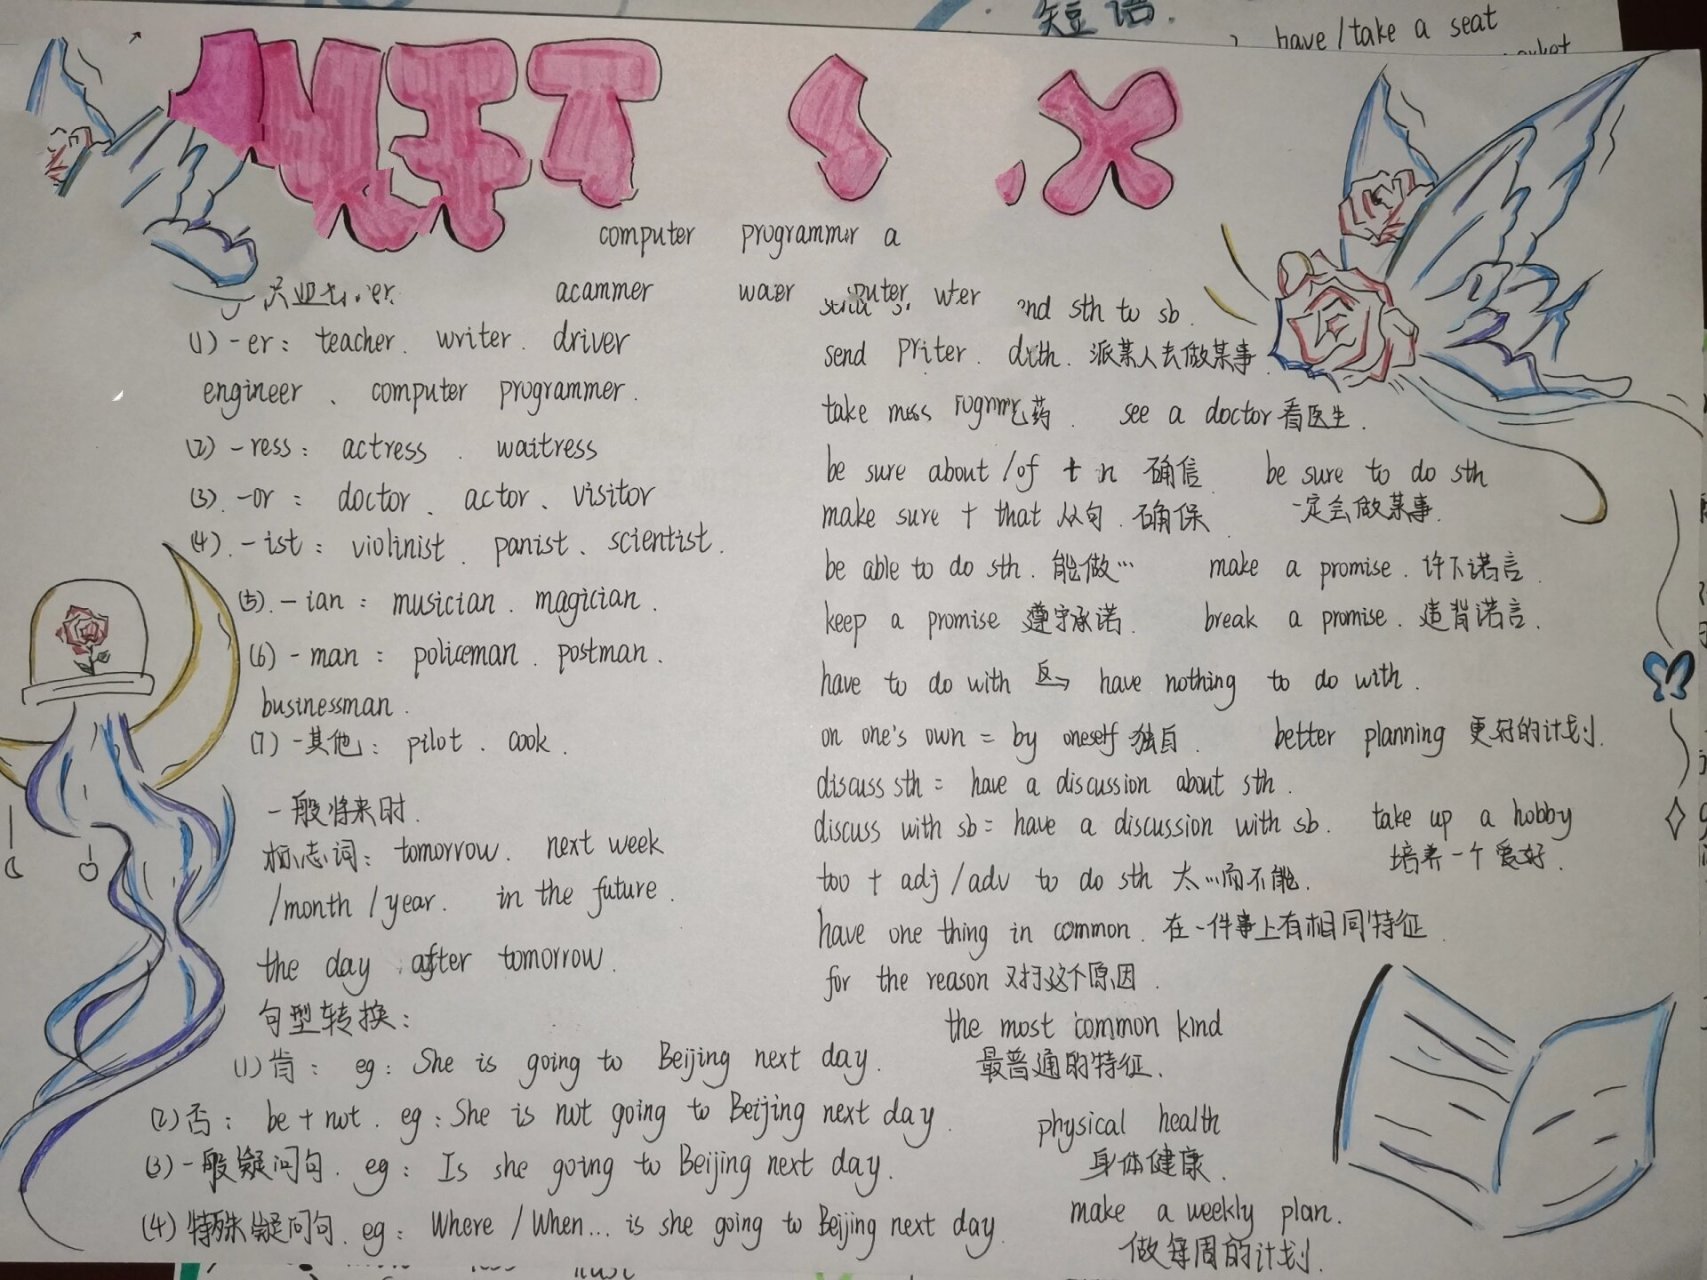 短语.
have / take a seat
computer programmer a
acammer
(1) -er: teacher. writer. driver
engineer、computer programmer.
(2) -ress: actress. waitress
(3). -or: doctor、actor、visitor
(4). -ist: violinist. panist、scientist.
(5). -ian: musician. magician.
(6) -man: policeman. postman.
businessman.
(7) -其他: pilot. cook.
一般将来时.
标志词: tomorrow. next week
/month / year. in the future.
the day after tomorrow.
句型转换:
(1) 肯: eg: She is going to Beijing next day.
(2) 否: be + not. eg: She is not going to Beijing next day.
(3) 一般疑问句. eg: Is she going to Beijing next day.
(4) 特殊疑问句. eg: Where / When... is she going to Beijing next day.
sth to sb.
send 派某人去做某事.
take 药. see a doctor 看医生.
be sure about /of + n 确信 be sure to do sth
make sure + that 从句. 确保 一定会做某事.
be able to do sth. 能做… make a promise. 许下诺言.
keep a promise 遵守承诺. break a promise. 违背诺言.
have to do with 反→ have nothing to do with.
on one's own = by oneself 独自. better planning 更好的计划.
discuss sth = have a discussion about sth.
discuss with sb = have a discussion with sb. take up a hobby
培养一个爱好.
too + adj /adv to do sth 太…而不能.
have one thing in common. 在一件事上有相同特征
for the reason 对于这个原因.
the most common kind
最普通的特征.
physical health
身体健康.
make a weekly plan.
做每周的计划.